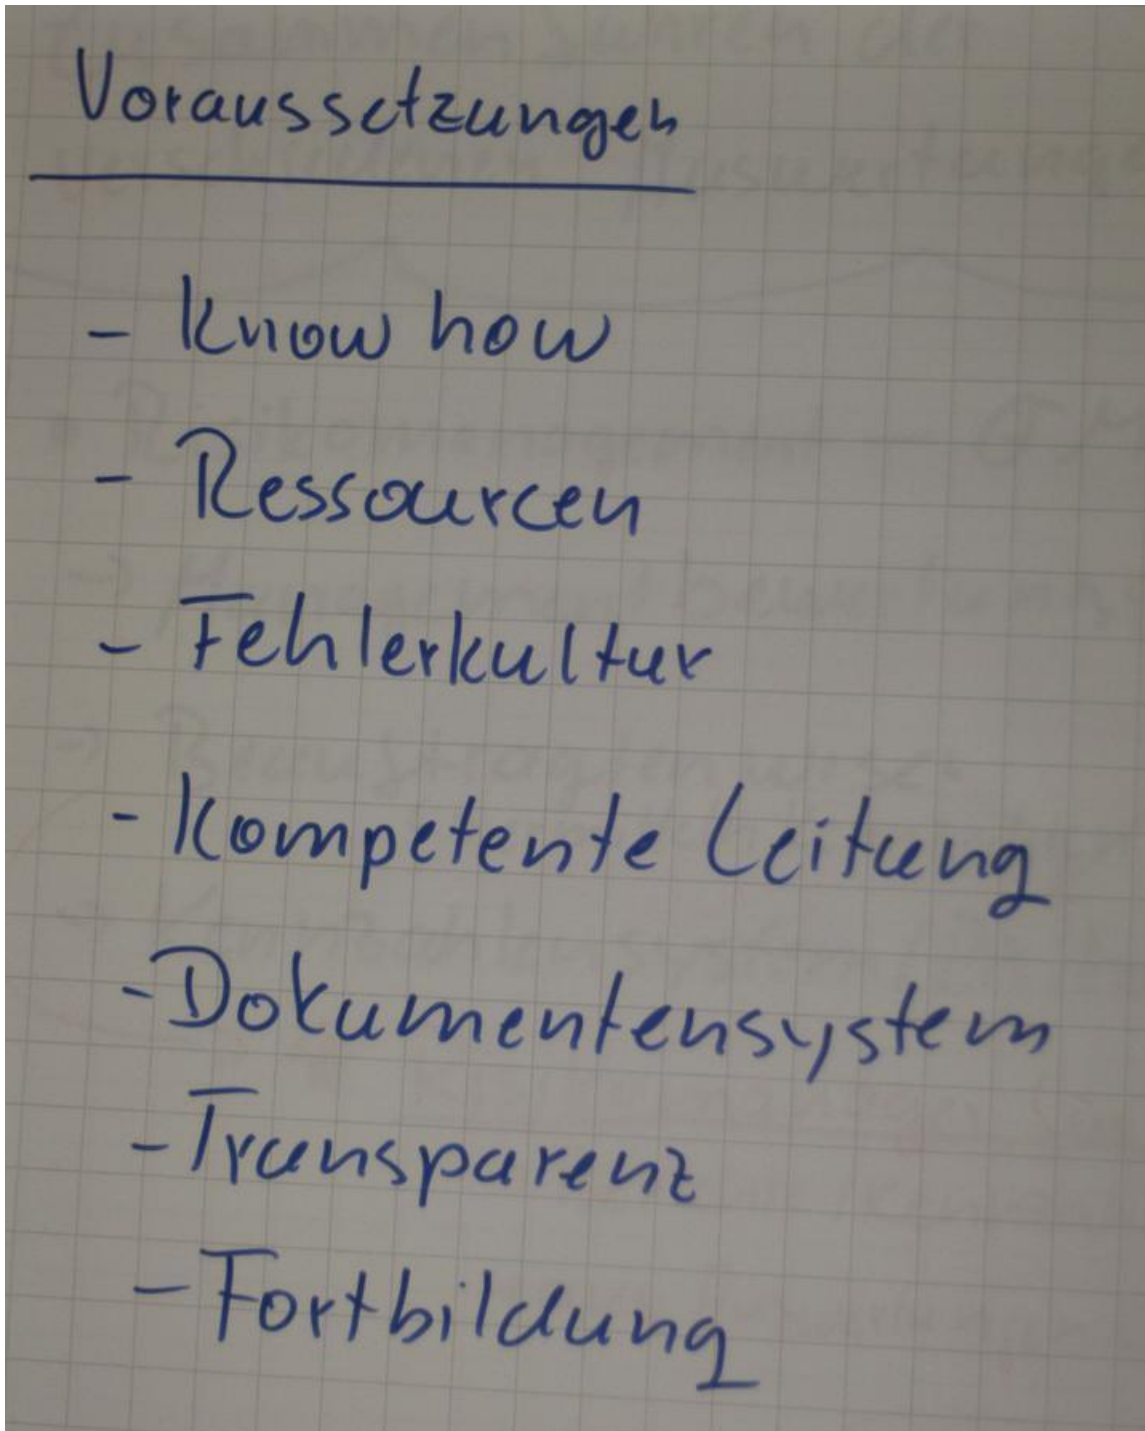 Voraussetzungen
- Know how
- Ressourcen
- Fehlerkultur
- Kompetente Leitung
- Dokumentensystem
- Transparenz
- Fortbildung